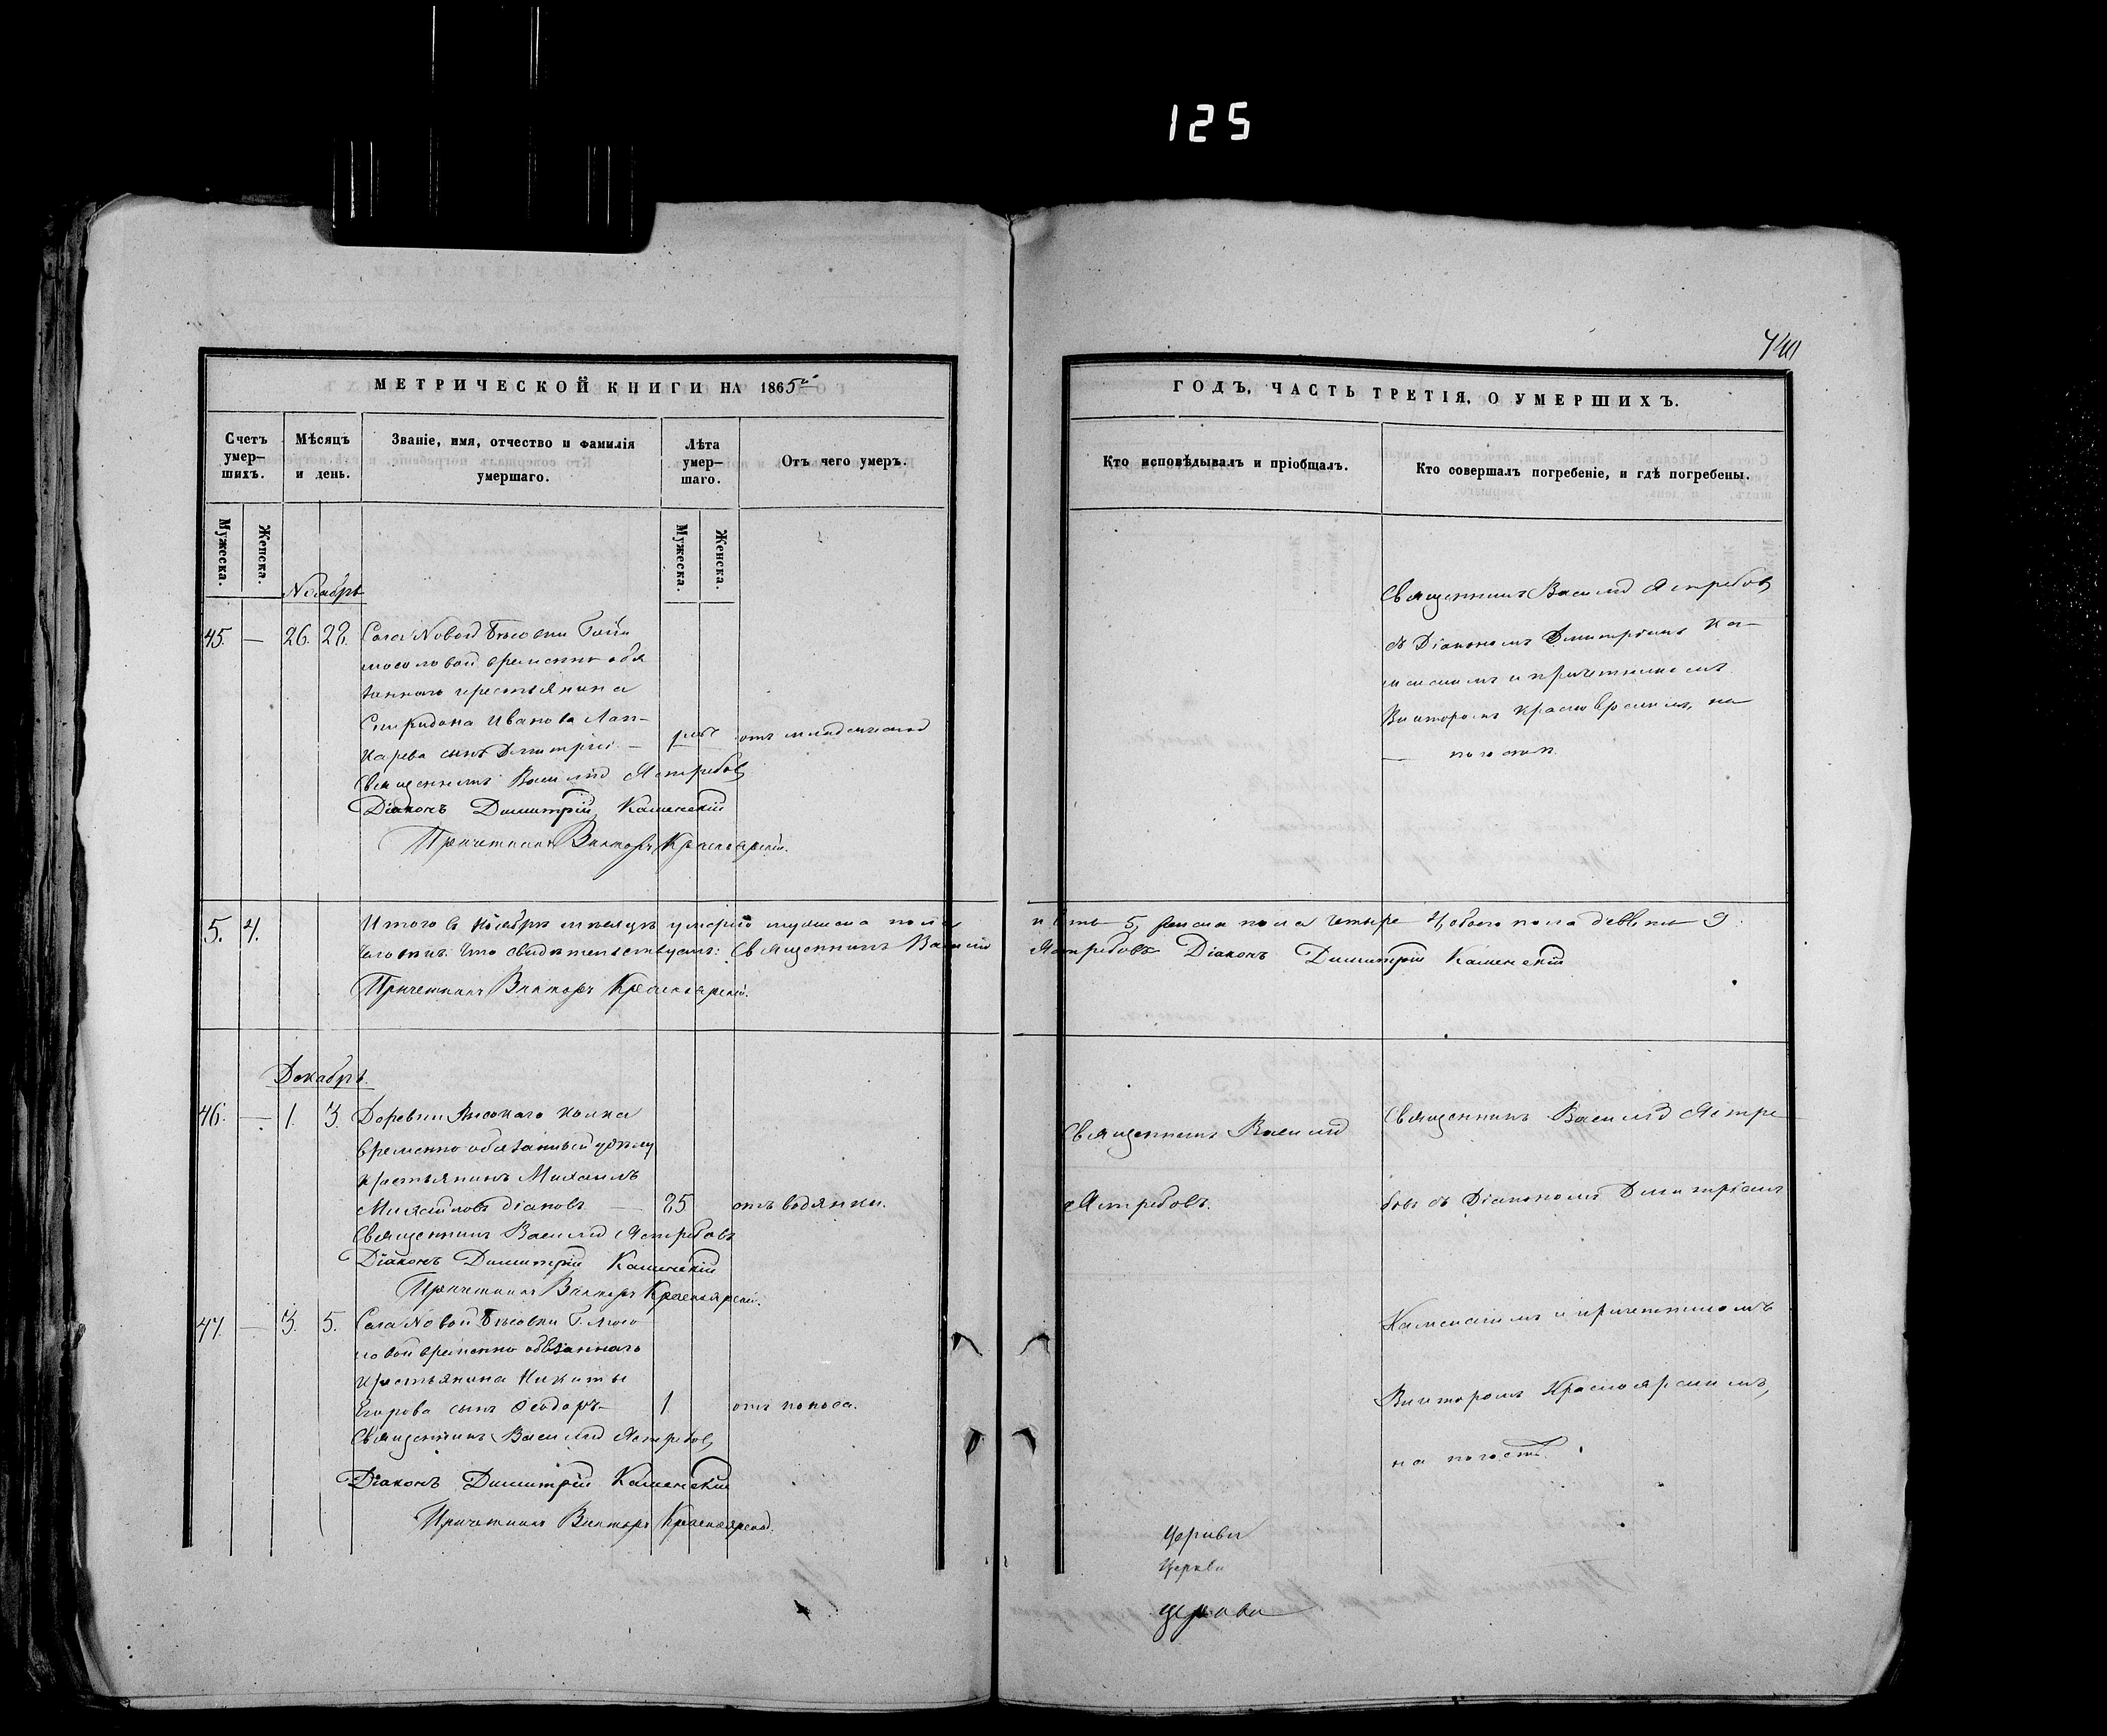 125
740
МЕТРИЧЕСКОЙ КНИГИ НА 1865й
Счетъ умер-шихъ.
Мѣсяцъ и день.
Званіе, имя, отчество и фамилія умершаго.
Лѣта умер-шаго.
Отъ чего умеръ.
Мужеска.
Женска.
Мужеска.
Женска.
Ноябрь
45. — 26. 28. Села Новой Бѣсовки
временно обя
заннаго крестьянина
Спиридона Иванова Лап-
карева сынъ Димитрій —
отъ младенческой
Священникъ Василій Ястребовъ
Діаконъ Димитрій Каменскій
Причетникъ Викторъ Красноярскій.
5. 4. Итого въ Ноябрѣ мѣсяцѣ умерло мужеска пола
человѣкъ. Что свидѣтельствуемъ: Священникъ Василій
Причетникъ Викторъ Красноярскій.
Декабрь.
46. — 1. 3. Деревни Высокаго колка
временно обязанный
крестьянинъ Михаилъ
Михайловъ Діаковъ — 85 отъ водянки.
Священникъ Василій Ястребовъ
Діаконъ Димитрій Каменскій
Причетникъ Викторъ Красноярскій.
47. — 3. 5. Села Новой Бѣсовки Г. Мосо
ловой временно обязаннаго
крестьянина Никиты
Егорова сынъ Ѳеодоръ — 1 отъ поноса.
Священникъ Василій Ястребовъ
Діаконъ Димитрій Каменскій
Причетникъ Викторъ Красноярскій.
ГОДЪ, ЧАСТЬ ТРЕТІЯ, О УМЕРШИХЪ.
Кто исповѣдывалъ и пріобщалъ.
Кто совершалъ погребеніе, и гдѣ погребены.
Священникъ Василій Ястребовъ
съ Діакономъ Димитріемъ Ка-
менскимъ и причетникомъ
Викторомъ Красноярскимъ, на
— погостѣ.
пять 5, женска пола четыре 4, обоего пола девять 9
Ястребовъ Діаконъ Димитрій Каменскій
Священникъ Василій
Ястребовъ.
Священникъ Василій Ястре
бовъ съ Діакономъ Димитріемъ
Каменскимъ и причетникомъ
Викторомъ Красноярскимъ,
на погостѣ.
Церкви
Церкви
Церкви